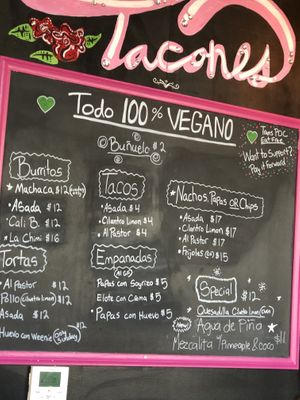 Tacones
Todo 100% VEGANO
Buñuelo $2
Trans POC
Eat Free
Want to Support?
Pay it Forward!
Burritos
Machaca $12
• Asada $12
• Cali B. $12
• La Chimi $16
Tortas
Al Pastor $12
Pollo (Cilantro Limon) $12
Asada $12
Huevo con Weenie $12
Tacos
• Asada $4
• Cilantro Limon $4
• Al Pastor $4
Empanadas
Papas con Soyrizo $5
Elote con Crema $5
• Papas con Huevo $5
Nachos, Papas OR Chips
• Asada $17
• Cilantro Limon $17
• Al Pastor $17
• Frijoles $15
Special
$12
Quesadilla Cilantro Limon
Agua de Piña
Mezcalita w/ Pineapple & coco $11